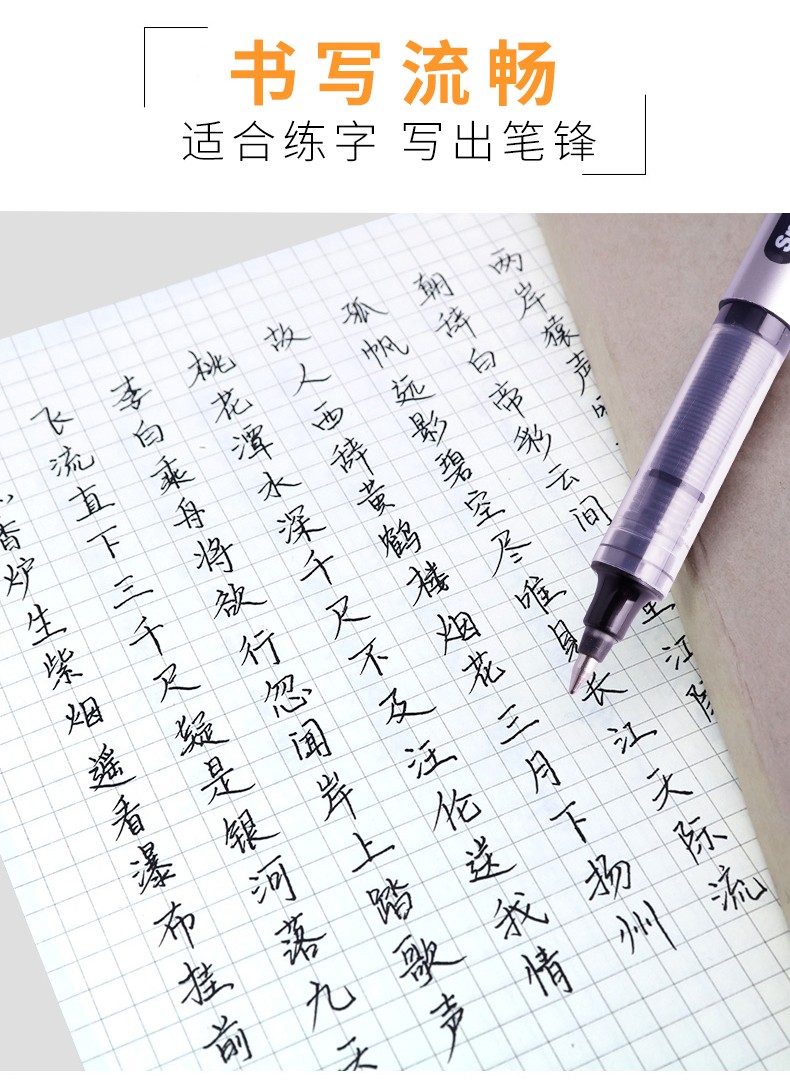 书写流畅
适合练字 写出笔锋
两岸猿声
朝辞白帝彩云间 江
孤帆远影碧空尽唯见长江天际流
故人西辞黄鹤楼烟花三月下扬州
桃花潭水深千尺不及汪伦送我情
李白乘舟将欲行忽闻岸上踏歌声
飞流直下三千尺疑是银河落九天
香炉生紫烟遥看瀑布挂前